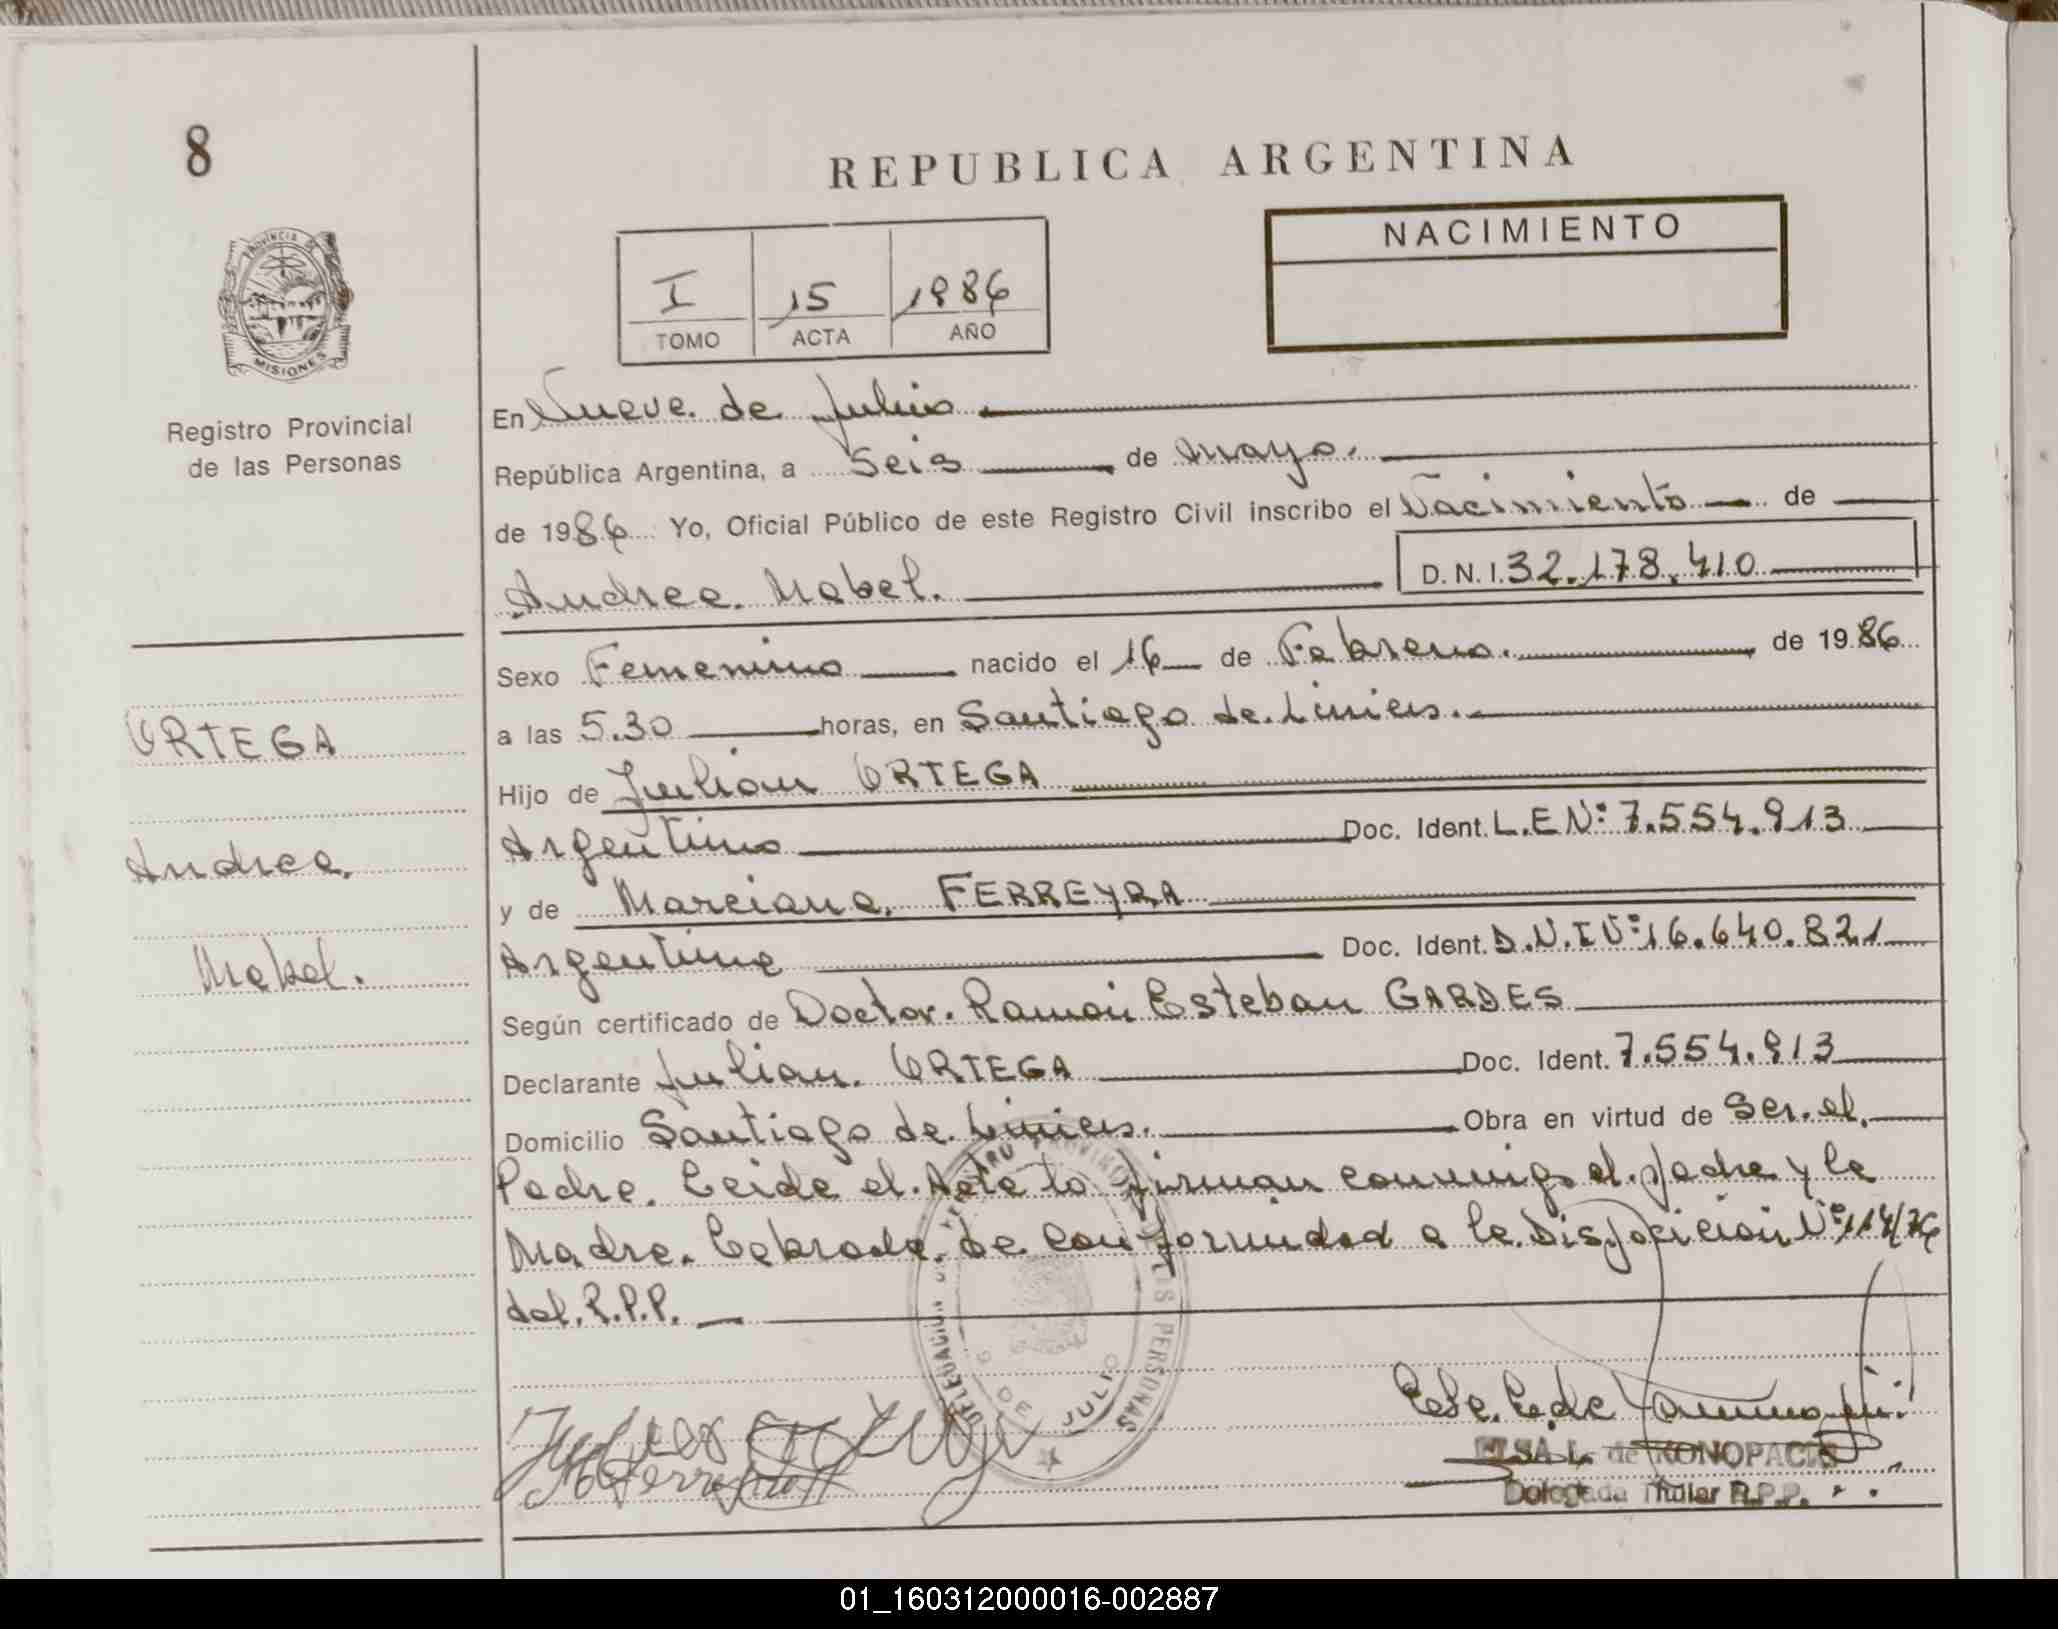 8
REPUBLICA ARGENTINA
NACIMIENTO
I 15 1986
TOMO ACTA AÑO
PROVINCIA DE
MISIONES
Registro Provincial
de las Personas
En Nueve de Julio
República Argentina, a Seis de Mayo.
de 1986 Yo, Oficial Público de este Registro Civil inscribo el Nacimiento de
Andrea Mabel. D.N.I. 32.178.410
Sexo Femenino nacido el 16 de Febrero. de 1986
a las 5.30 horas, en Santiago de Liniers.
Hijo de Julian ORTEGA
Argentino Doc. Ident. L.E Nº: 7.554.913
y de Marciana FERREYRA
Argentina Doc. Ident. D.N.I Nº: 16.640.821
Según certificado de Doctor. Ramón Esteban GARDES
Declarante Julian. ORTEGA Doc. Ident. 7.554.913
Domicilio Santiago de Liniers. Obra en virtud de Ser. el.
Padre. Leida el. Acta la firman conmigo el. padre y la
Madre. Labrada de conformidad a la Disposición Nº: 114/76
del. R.P.P.
ORTEGA
Andrea
Mabel.
DELEGACION
PERSONAS
9 DE JULIO
ELSA L. de KONOPACKI
Delegada Titular R.P.P.
01_160312000016-002887